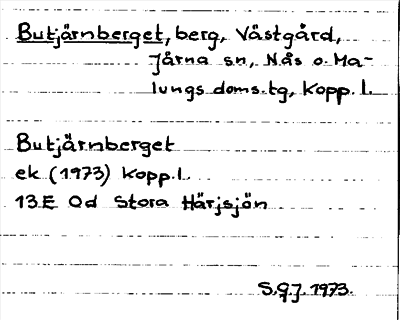 Butjärnberget, berg, Västgård,
Järna sn, Nås o. Ma-
lungs doms.tg, Kopp. l.
Butjärnberget
ek (1973) Kopp. l.
13 E 0d Stora Härjsjön
S.G.J. 1973.